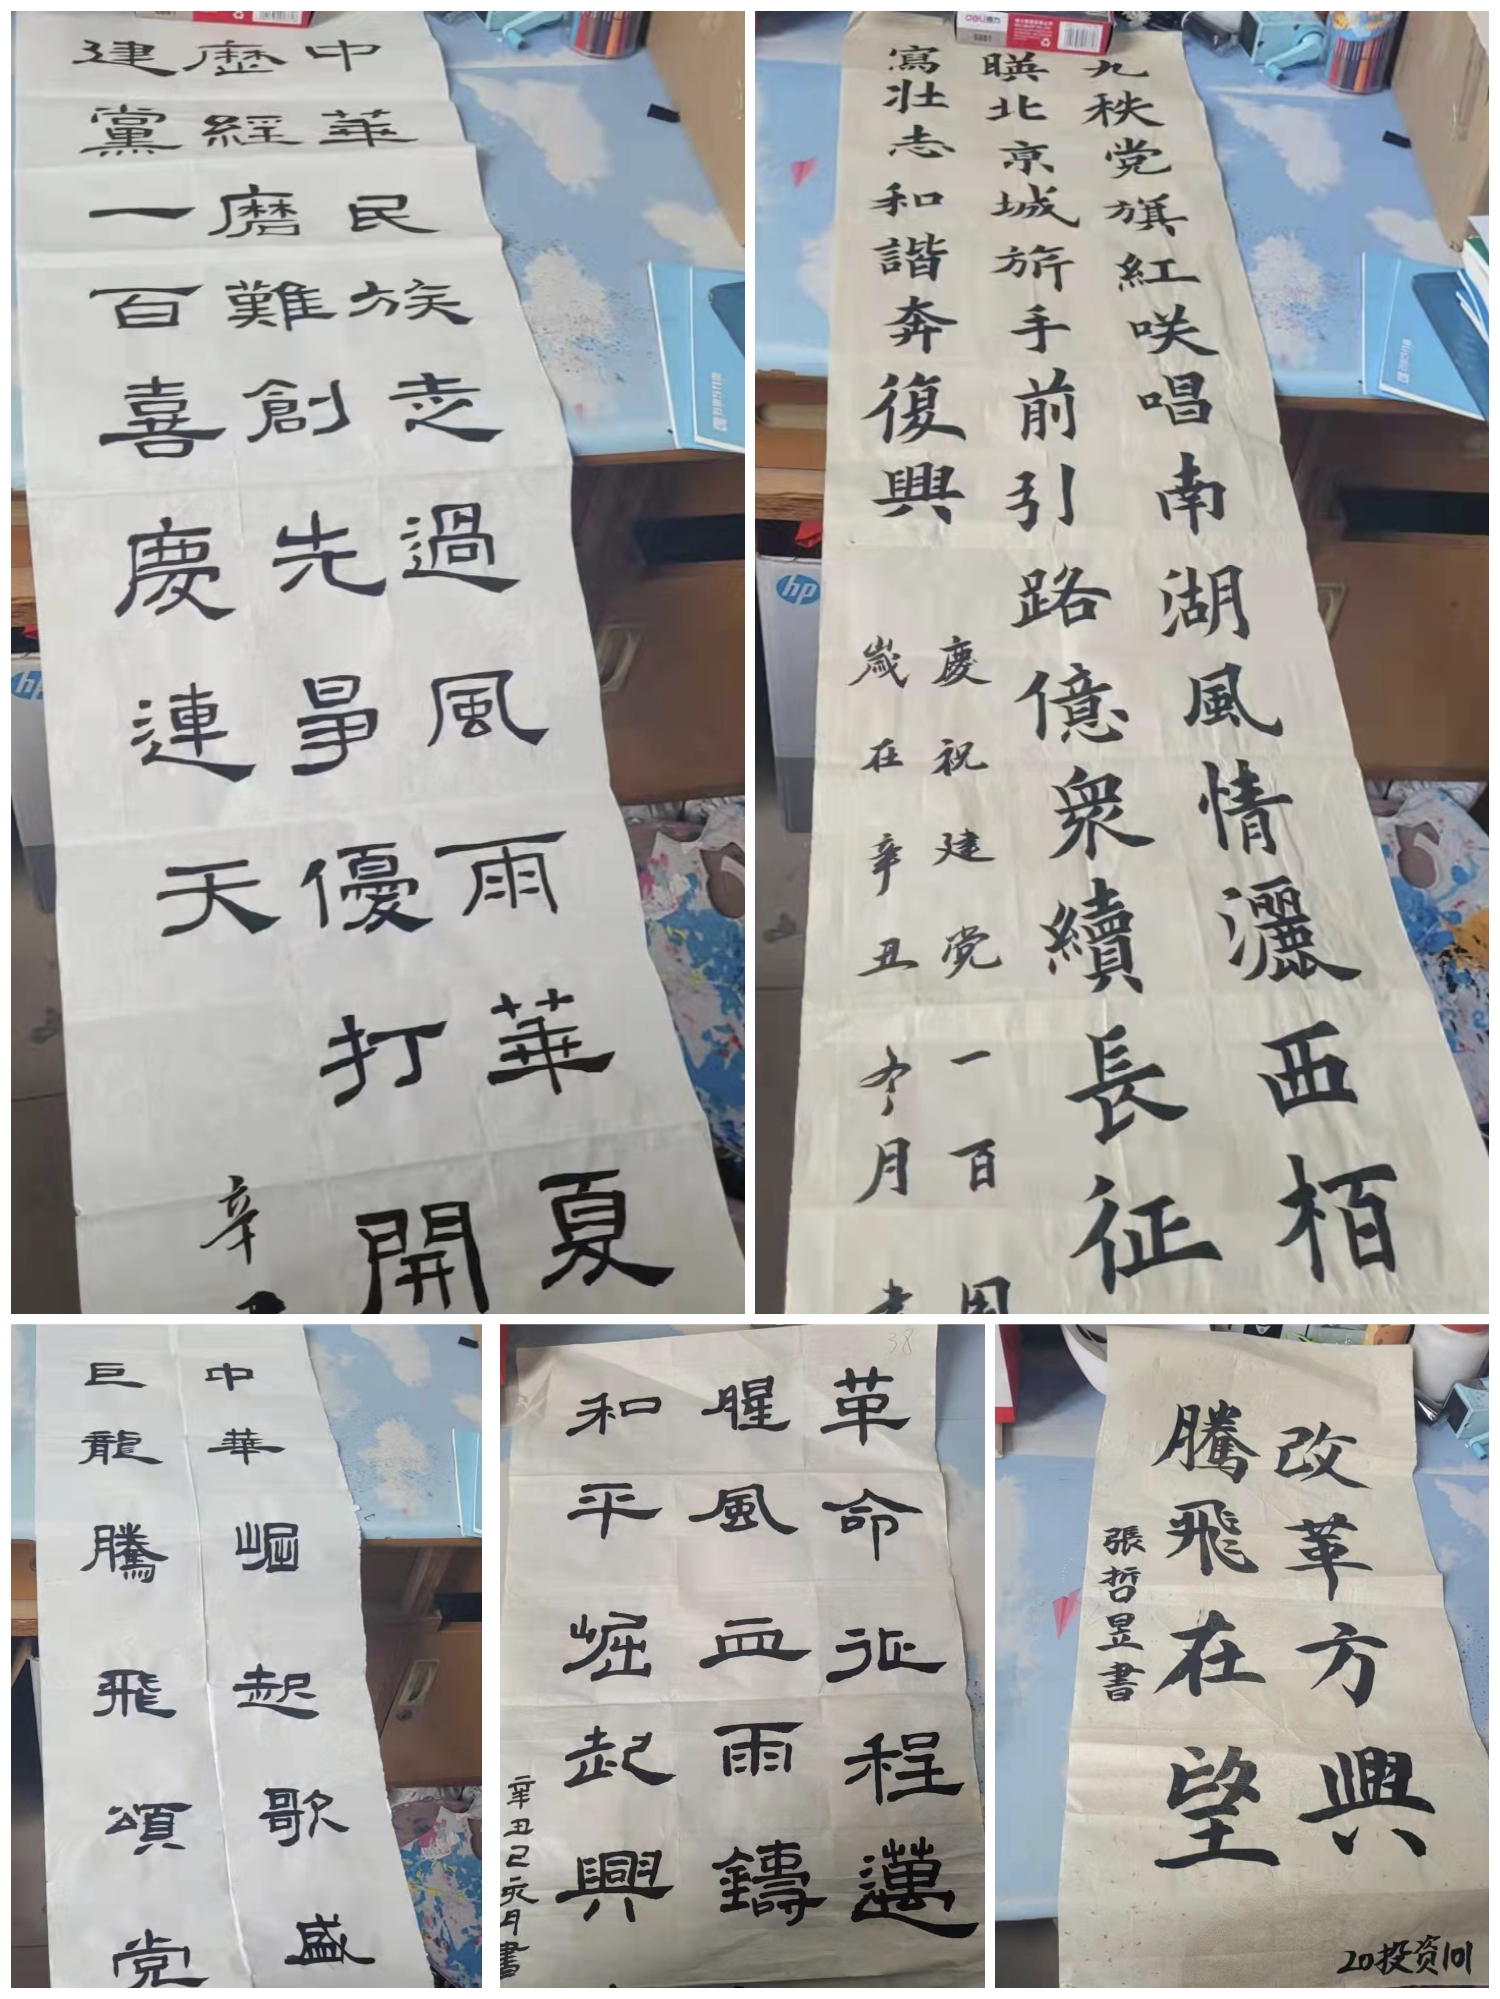 中華民族走過風雨華夏
歷經磨難創先爭優打開
建黨一百喜慶連天
辛丑
九秩党旗紅咲唱南湖風情灑西柏
暎北京城旂手前引路億衆續長征
寫壯志和諧奔復興
慶祝建党一百周
歲在辛丑冬月書
中華崛起歌盛
巨龍騰飛頌党
革命征程邁
腥風血雨鑄
和平崛起興
辛丑己亥月書
38
改革方興
騰飛在望
張哲昱書
20投资101
deli 得力
0037
hp
hp